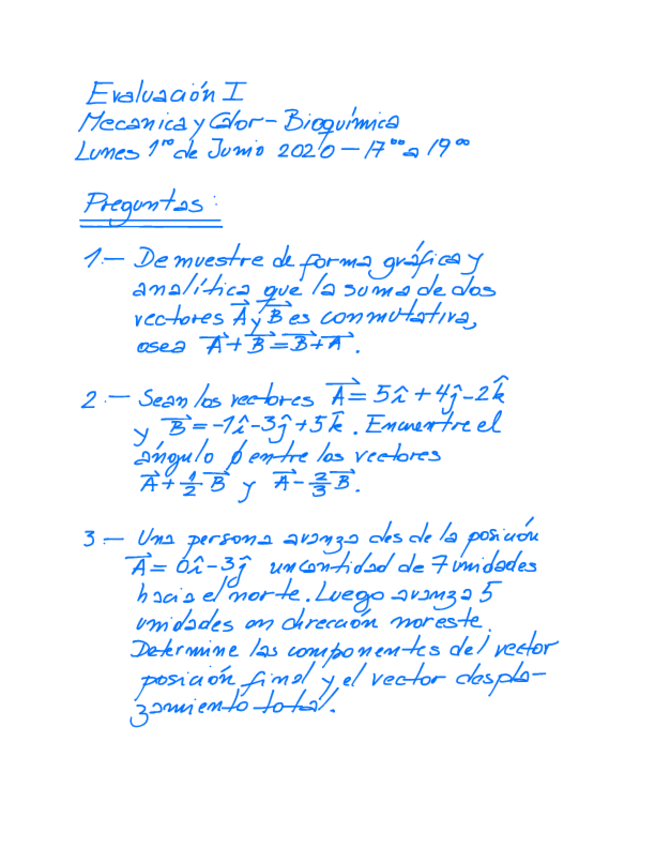 Evaluación I
Mecanica y Calor - Bioquímica
Lunes 1ro de Junio 2020 - 17°° a 19°°
Preguntas:
1.- Demuestre de forma gráfica y
analítica que la suma de dos
vectores A⃗ y B⃗ es conmutativa,
osea A⃗ + B⃗ = B⃗ + A⃗.
2.- Sean los vectores A⃗ = 5î + 4ĵ - 2k̂
y B⃗ = -1î - 3ĵ + 5k̂. Encuentre el
ángulo ϕ entre los vectores
A⃗ + 1/2 B⃗ y A⃗ - 2/3 B⃗.
3.- Una persona avanza desde la posición
A⃗ = 0î - 3ĵ un cantidad de 7 unidades
hacia el norte. Luego avanza 5
unidades en dirección noreste.
Determine las componentes del vector
posición final y el vector despla-
zamiento total.